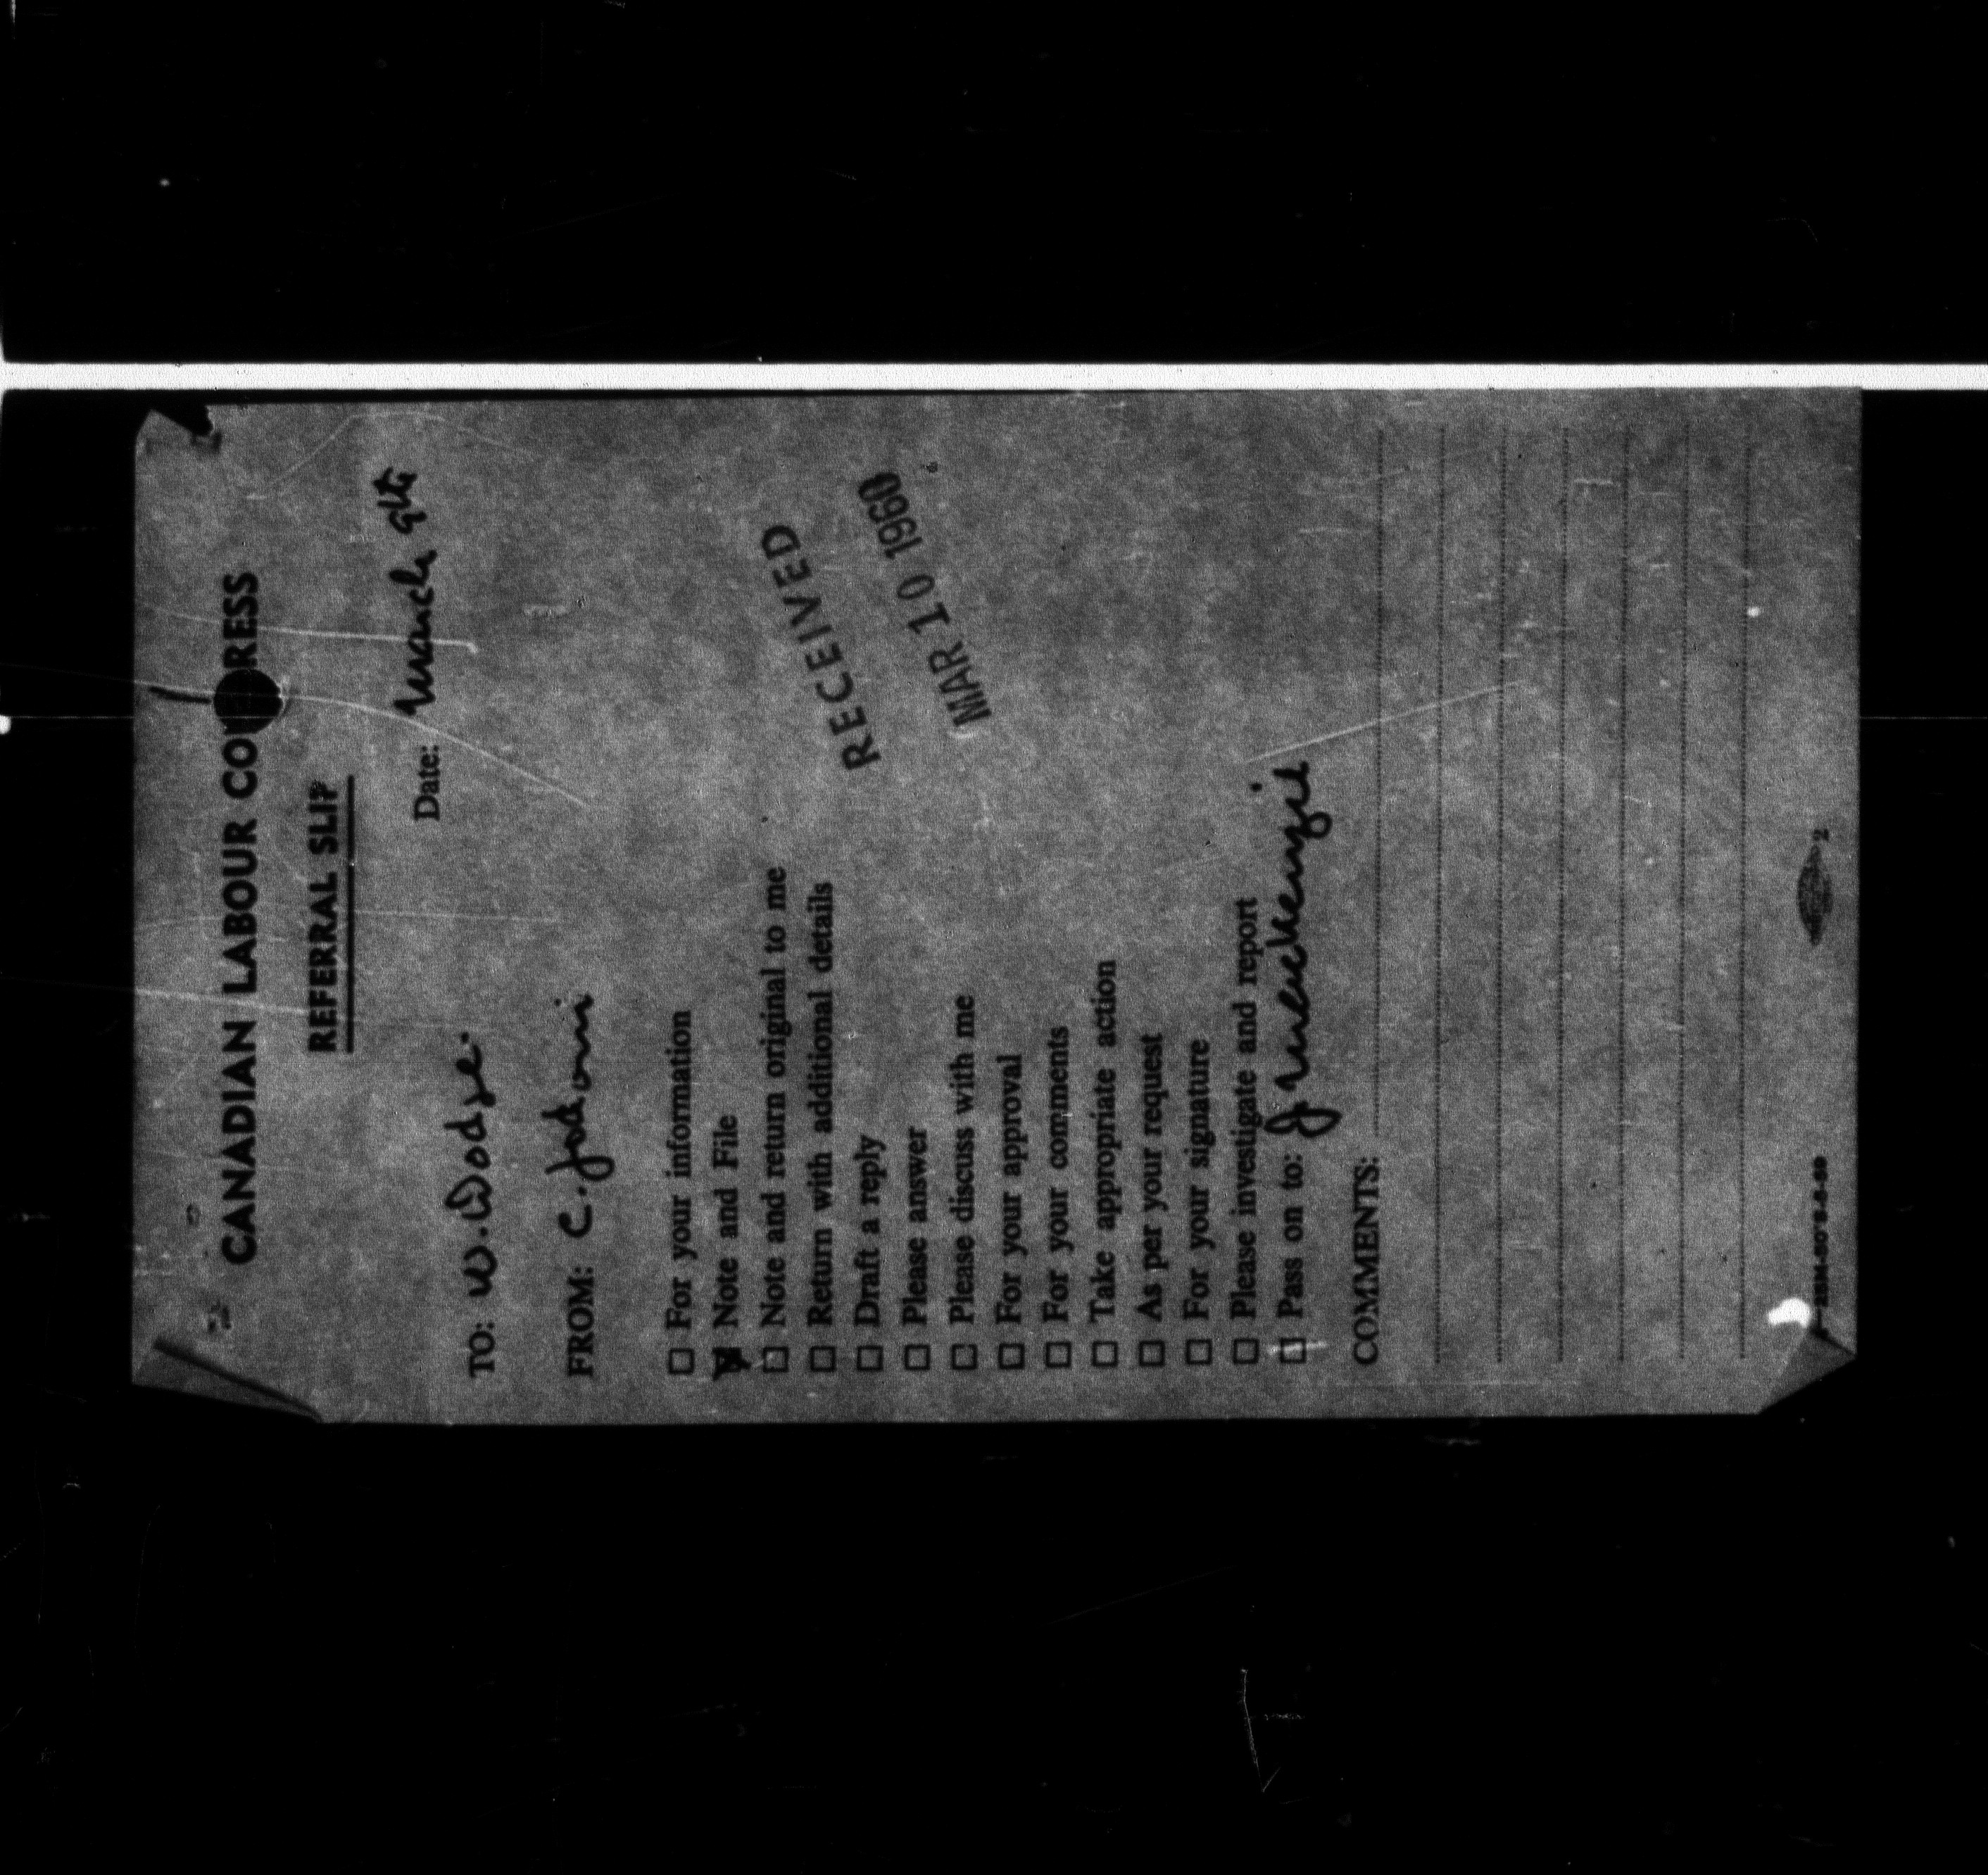 CANADIAN LABOUR CONGRESS
REFERRAL SLIP
Date: March 9th
TO: W. Dodge.
FROM: C. Jodoin
☐ For your information
☒ Note and File
☐ Note and return original to me
☐ Return with additional details
☐ Draft a reply
☐ Please answer
☐ Please discuss with me
☐ For your approval
☐ For your comments
☐ Take appropriate action
☐ As per your request
☐ For your signature
☐ Please investigate and report
☐ Pass on to: J MacKenzie
COMMENTS:
RECEIVED
MAR 10 1960
2